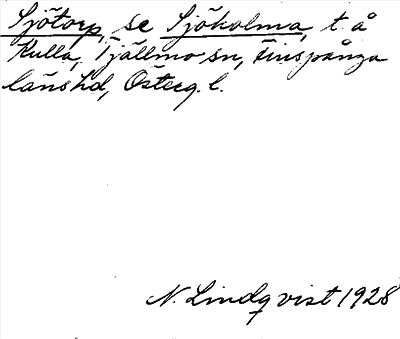 Sjötorp, se Sjökolma, t. å
Kulla, Tjällmo sn, Finspånga
länshd, Österg. l.
N. Lindqvist 1928